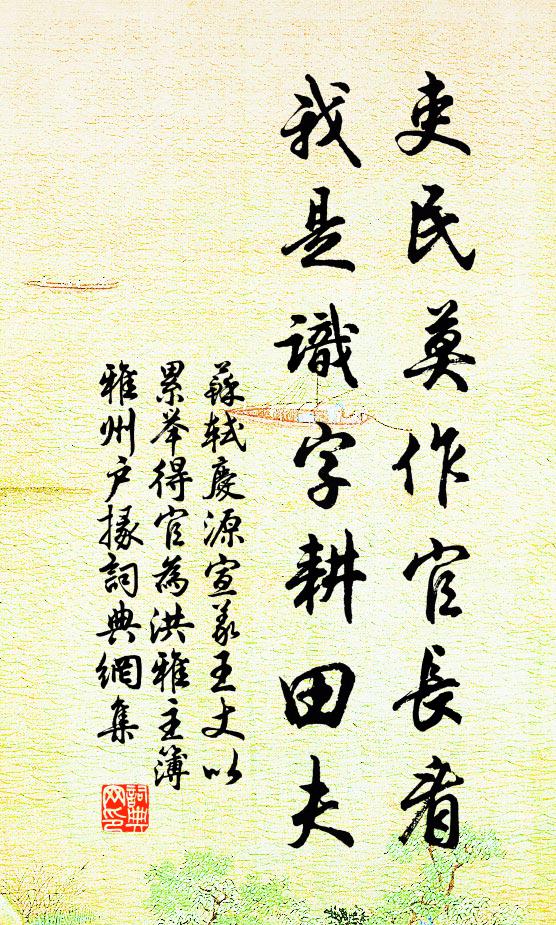 吏民莫作官長者
我是識字耕田夫
蘇軾慶源宣義王丈以
累举得官為洪雅主簿
雅州户掾詞典網集
詞典网印